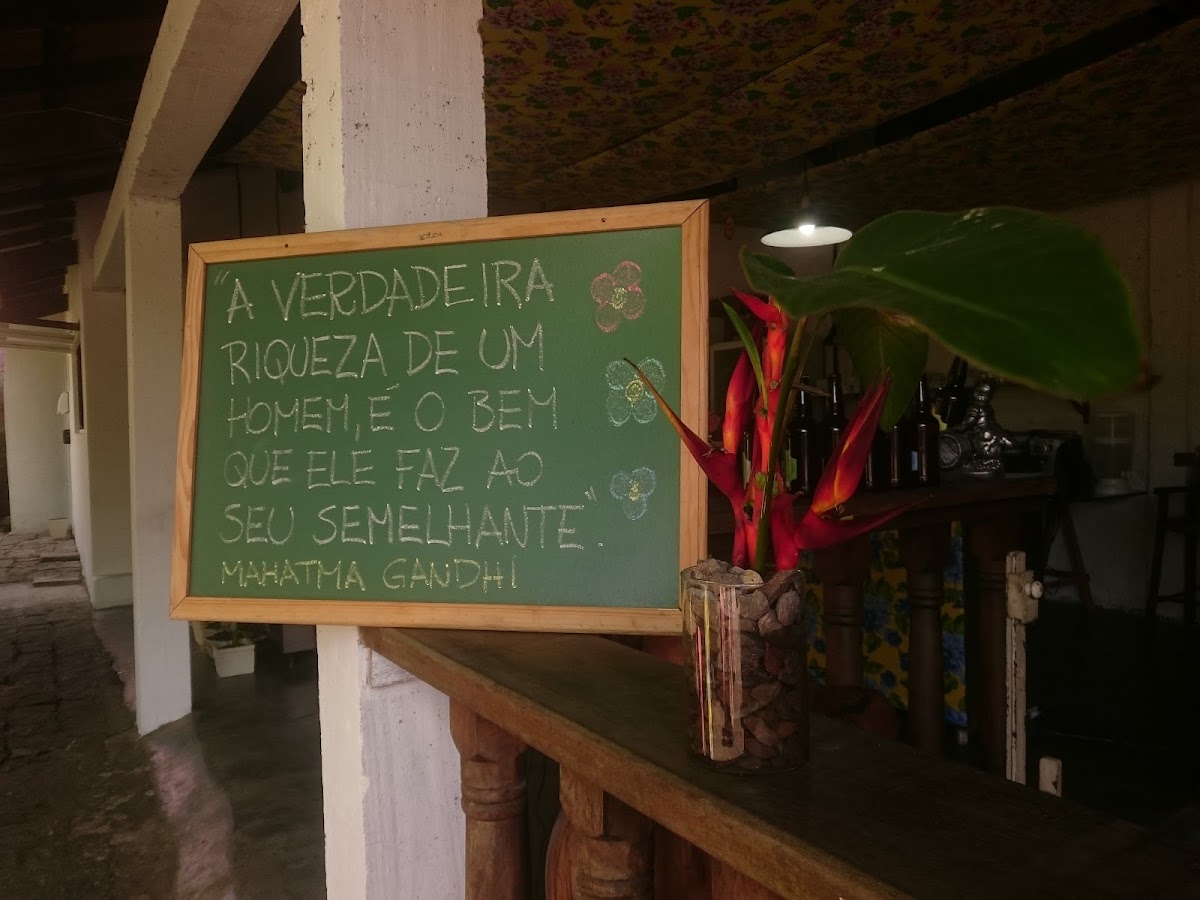 "A VERDADEIRA
RIQUEZA DE UM
HOMEM, É O BEM
QUE ELE FAZ AO
SEU SEMELHANTE".
MAHATMA GANDHI